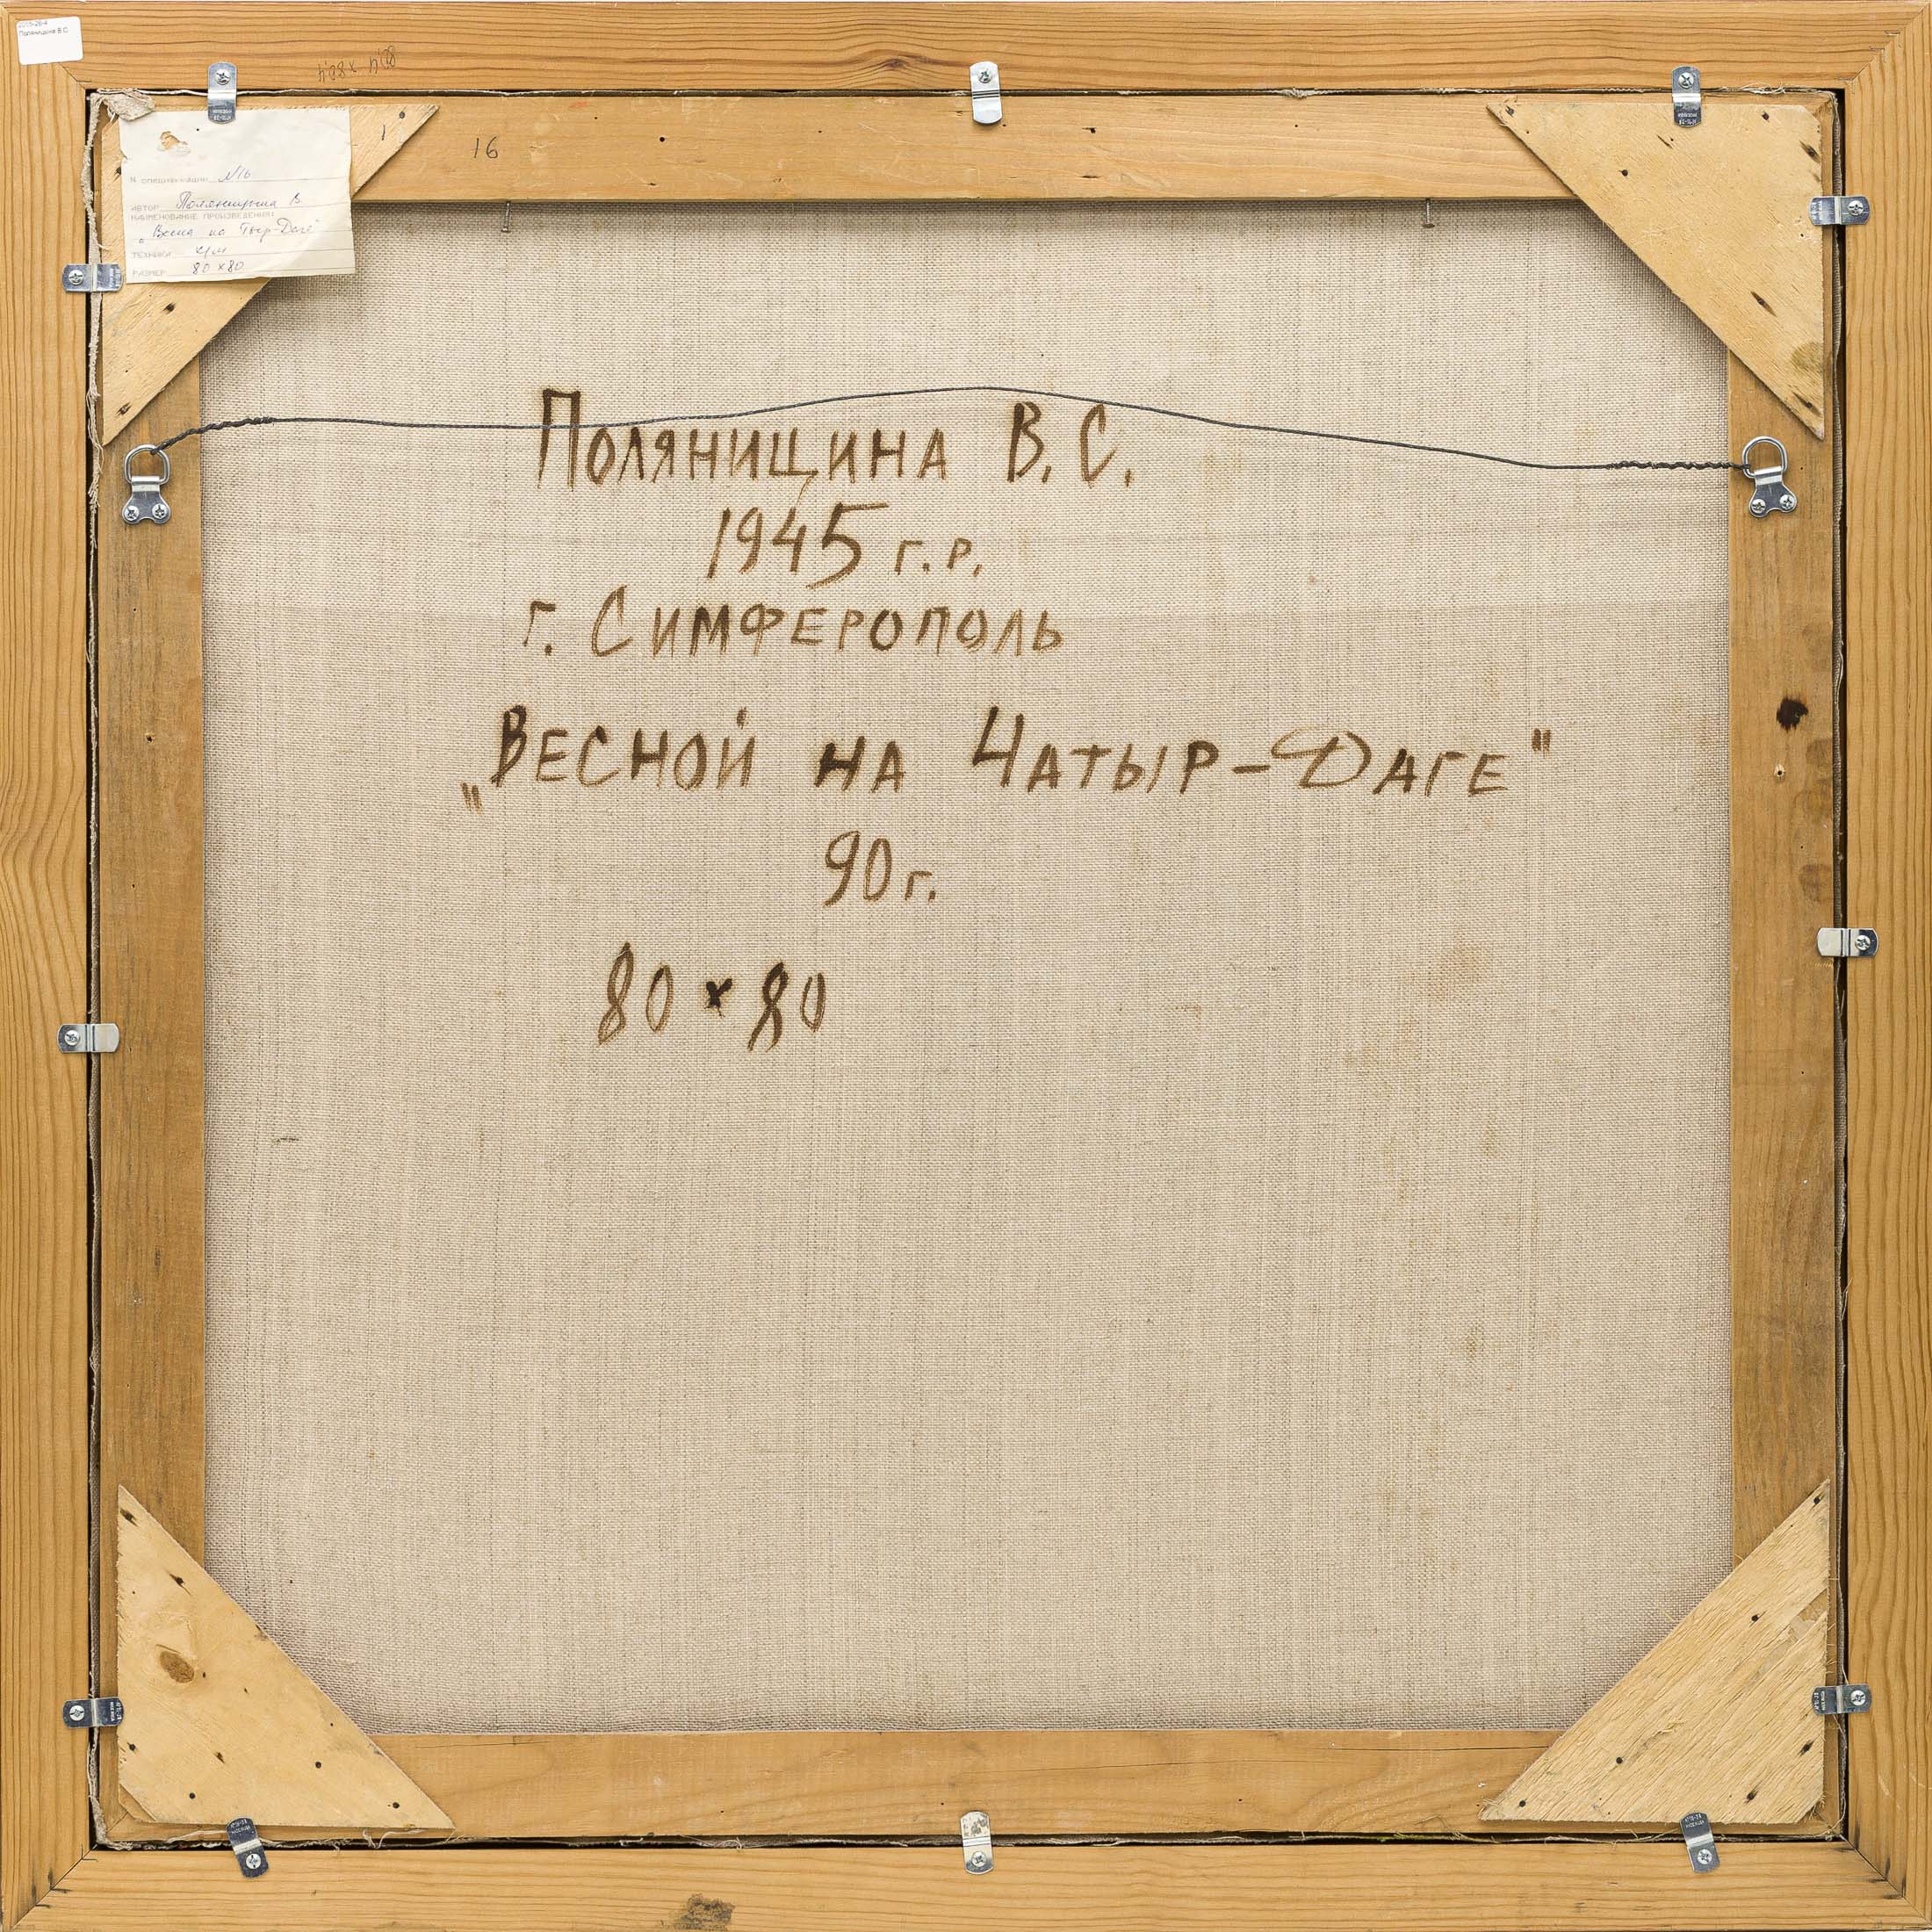 Поляницина В.С.
80,4 x 80,4
16
N СПЕЦИФИКАЦИИ N16
АВТОР Поляницина В
НАИМЕНОВАНИЕ ПРОИЗВЕДЕНИЯ:
„Весна на Тыр-Даге"
ТЕХНИКА х/м
РАЗМЕР 80 x 80
Поляницина В.С.
1945 г.р.
г. Симферополь
„Весной на Чатыр-Даге"
90 г.
80 x 80